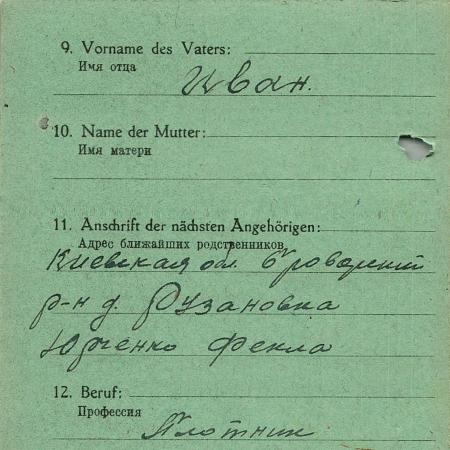 9. Vorname des Vaters:
Имя отца
Иван.
10. Name der Mutter:
Имя матери
11. Anschrift der nächsten Angehörigen:
Адрес ближайших родственников
Киевская обл. Броварский
р-н д. Рузановка
Юрченко Фекла
12. Beruf:
Профессия
Плотник